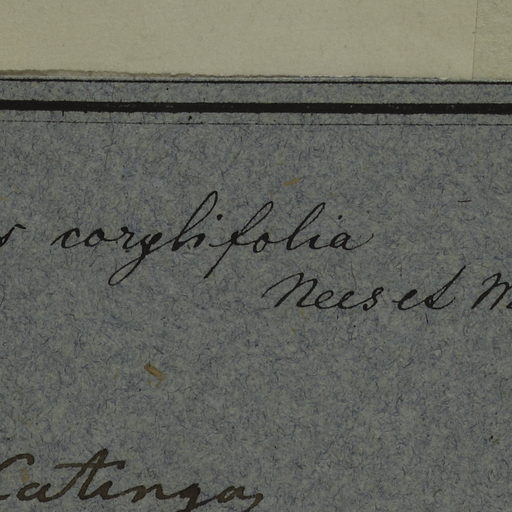 corylifolia
Nees et M
Catinga,